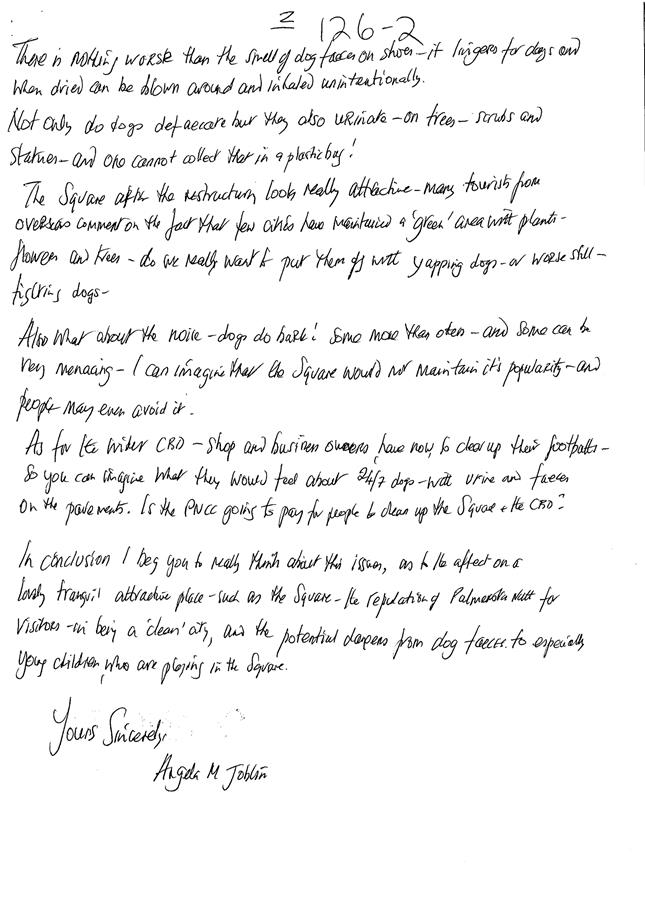 2 126-2
There is nothing worse than the smell of dog faeces on shoes - it lingers for days and
when dried can be blown around and inhaled unintentionally.
Not only do dogs defaecate but they also urinate - on trees - scrubs and
statues - and one cannot collect that in a plastic bag!
The Square after the restructuring looks really attractive - many tourists from
overseas comment on the fact that few cities have maintained a 'green' area with plants -
flowers and trees - do we really want to put them off with yapping dogs - or worse still -
fighting dogs -
Also what about the noise - dogs do bark! Some more than others - and some can be
very menacing - I can imagine that the Square would not maintain it's popularity - and
people may even avoid it.
As for the wider CBD - shop and business owners have now to clear up their footpaths -
So you can imagine what they would feel about 24/7 dogs - with urine and faeces
on the pavements. Is the PNCC going to pay for people to clean up the Square + the CBD?
In conclusion I beg you to really think about this issue, as to the affect on a
lovely tranquil attractive place - such as the Square - the reputation of Palmerston North for
visitors - in being a 'clean' city, and the potential dangers from dog faeces to especially
young children, who are playing in the Square.
Yours Sincerely,
Angela M Joblin